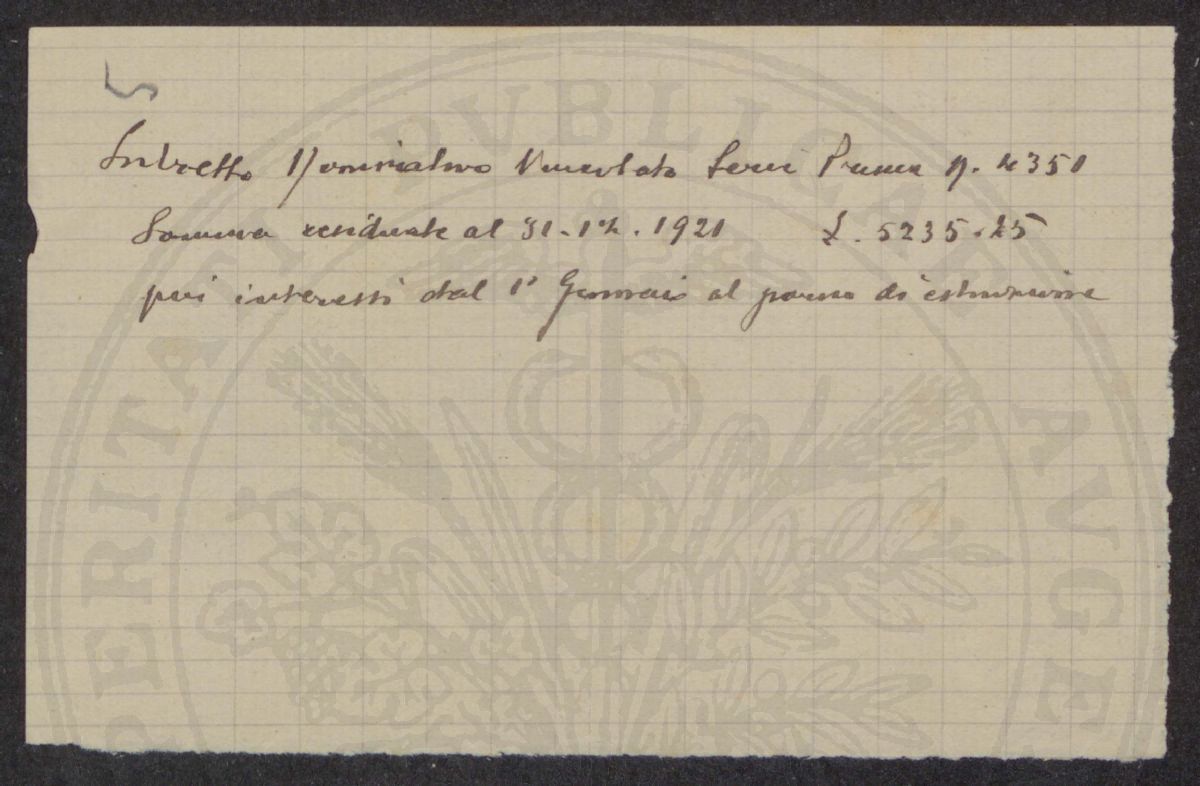 5
Libretto Nominativo Vincolato Serie Prima N. 4351
Somma residuale al 31-12.1921 £. 5235.25
più interessi dal 1° Gennaio al giorno di estinzione
PERITATI PVBLICAE AVGE